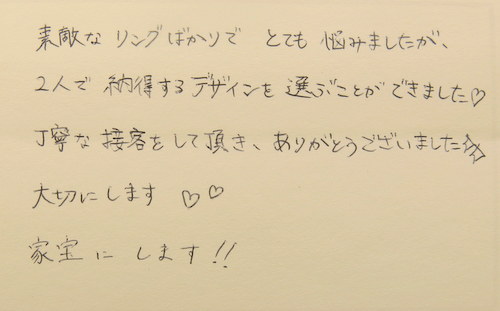 素敵な リングばかりで とても 悩みましたが、
2人で 納得するデザインを 選ぶことが できました♡
丁寧な 接客をして頂き、ありがとうございました☆☆
大切にします ♡♡
家宝に します!!